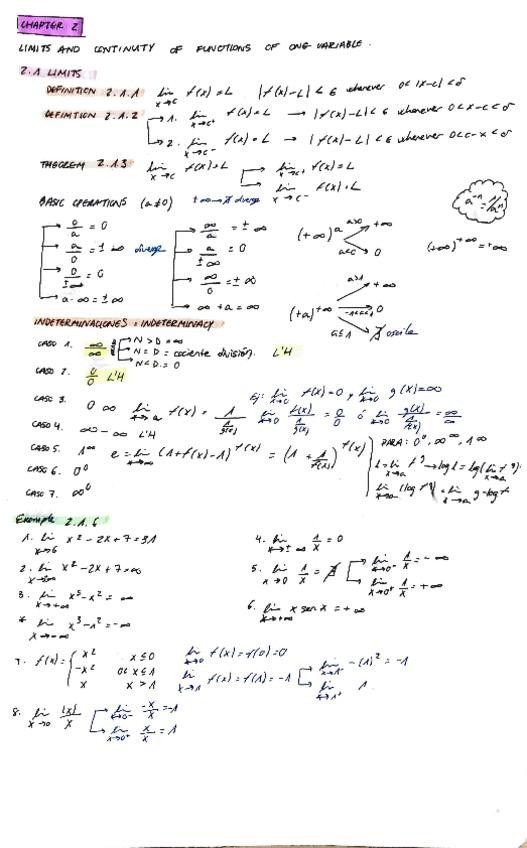 CHAPTER 2
LIMITS AND CONTINUITY OF FUNCTIONS OF ONE VARIABLE.
2.1 LIMITS
DEFINITION 2.1.1 lim x→c f(x)=L |f(x)-L|<ε whenever 0<|x-c|<δ
DEFINITION 2.1.2 1. lim x→c⁺ f(x)=L → |f(x)-L|<ε whenever 0<x-c<δ
2. lim x→c⁻ f(x)=L → |f(x)-L|<ε whenever 0<c-x<δ
THEOREM 2.1.3 lim x→c f(x)=L lim x→c⁺ f(x)=L
lim x→c⁻ f(x)=L
BASIC OPERATIONS (a≠0) ±∞→∄ diverge a⁻ⁿ=1/aⁿ
0/a = 0 ∞/a = ±∞ (+∞)^a a>0 +∞
a/0 = ±∞ diverge a/±∞ = 0 a<0 0 (+∞)^+∞ = +∞
0/±∞ = 0 ∞/0 = ±∞ a>1 +∞
a·∞ = ±∞ ∞+a = ∞ (+a)^+∞ -1<a<1 0
a≤1 ∄ oscila
INDETERMINACIONES = INDETERMINACY
CASO 1. ∞/∞ N>D = ∞
N=D = cociente división. L'H
N<D = 0
CASO 2. 0/0 L'H
CASO 3. 0·∞ lim x→a f(x) = 1/(1/g(x)) Ej: lim x→0 f(x)=0, lim x→0 g(x)=∞
lim x→0 f(x)/(1/g(x)) = 0/0 ó lim x→0 g(x)/(1/f(x)) = ∞/∞
CASO 4. ∞-∞ L'H
CASO 5. 1^∞ e = lim x→∞ (1+f(x)-1)^f(x) = (1+1/f(x))^f(x) PARA: 0⁰, ∞^∞, 1^∞
CASO 6. 0⁰
CASO 7. ∞⁰
Example 2.1.6
1. lim x→6 x²-2x+7=31
2. lim x²-2x+7=∞
3. lim x→+∞ x³-x² = ∞
* lim x→-∞ x³-x² = -∞
4. lim x→±∞ 1/x = 0
5. lim x→0 1/x = ∄ lim x→0⁻ 1/x = -∞
lim x→0⁺ 1/x = +∞
6. lim x→+∞ x sen x = +∞
7. f(x)= { x² x≤0 lim x→0 f(x)=f(0)=0
-x² 0<x≤1 lim x→1 f(x)=f(1)=-1 lim x→1⁻ -(1)²=-1
x x>1 lim x→1⁺ 1
8. lim x→0 |x|/x lim x→0⁻ -x/x=-1
lim x→0⁺ x/x=1